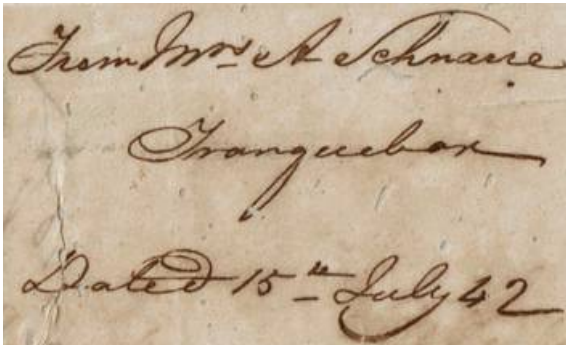 From Mrs A Schnarre
Tranquebar
Dated 15th July 42